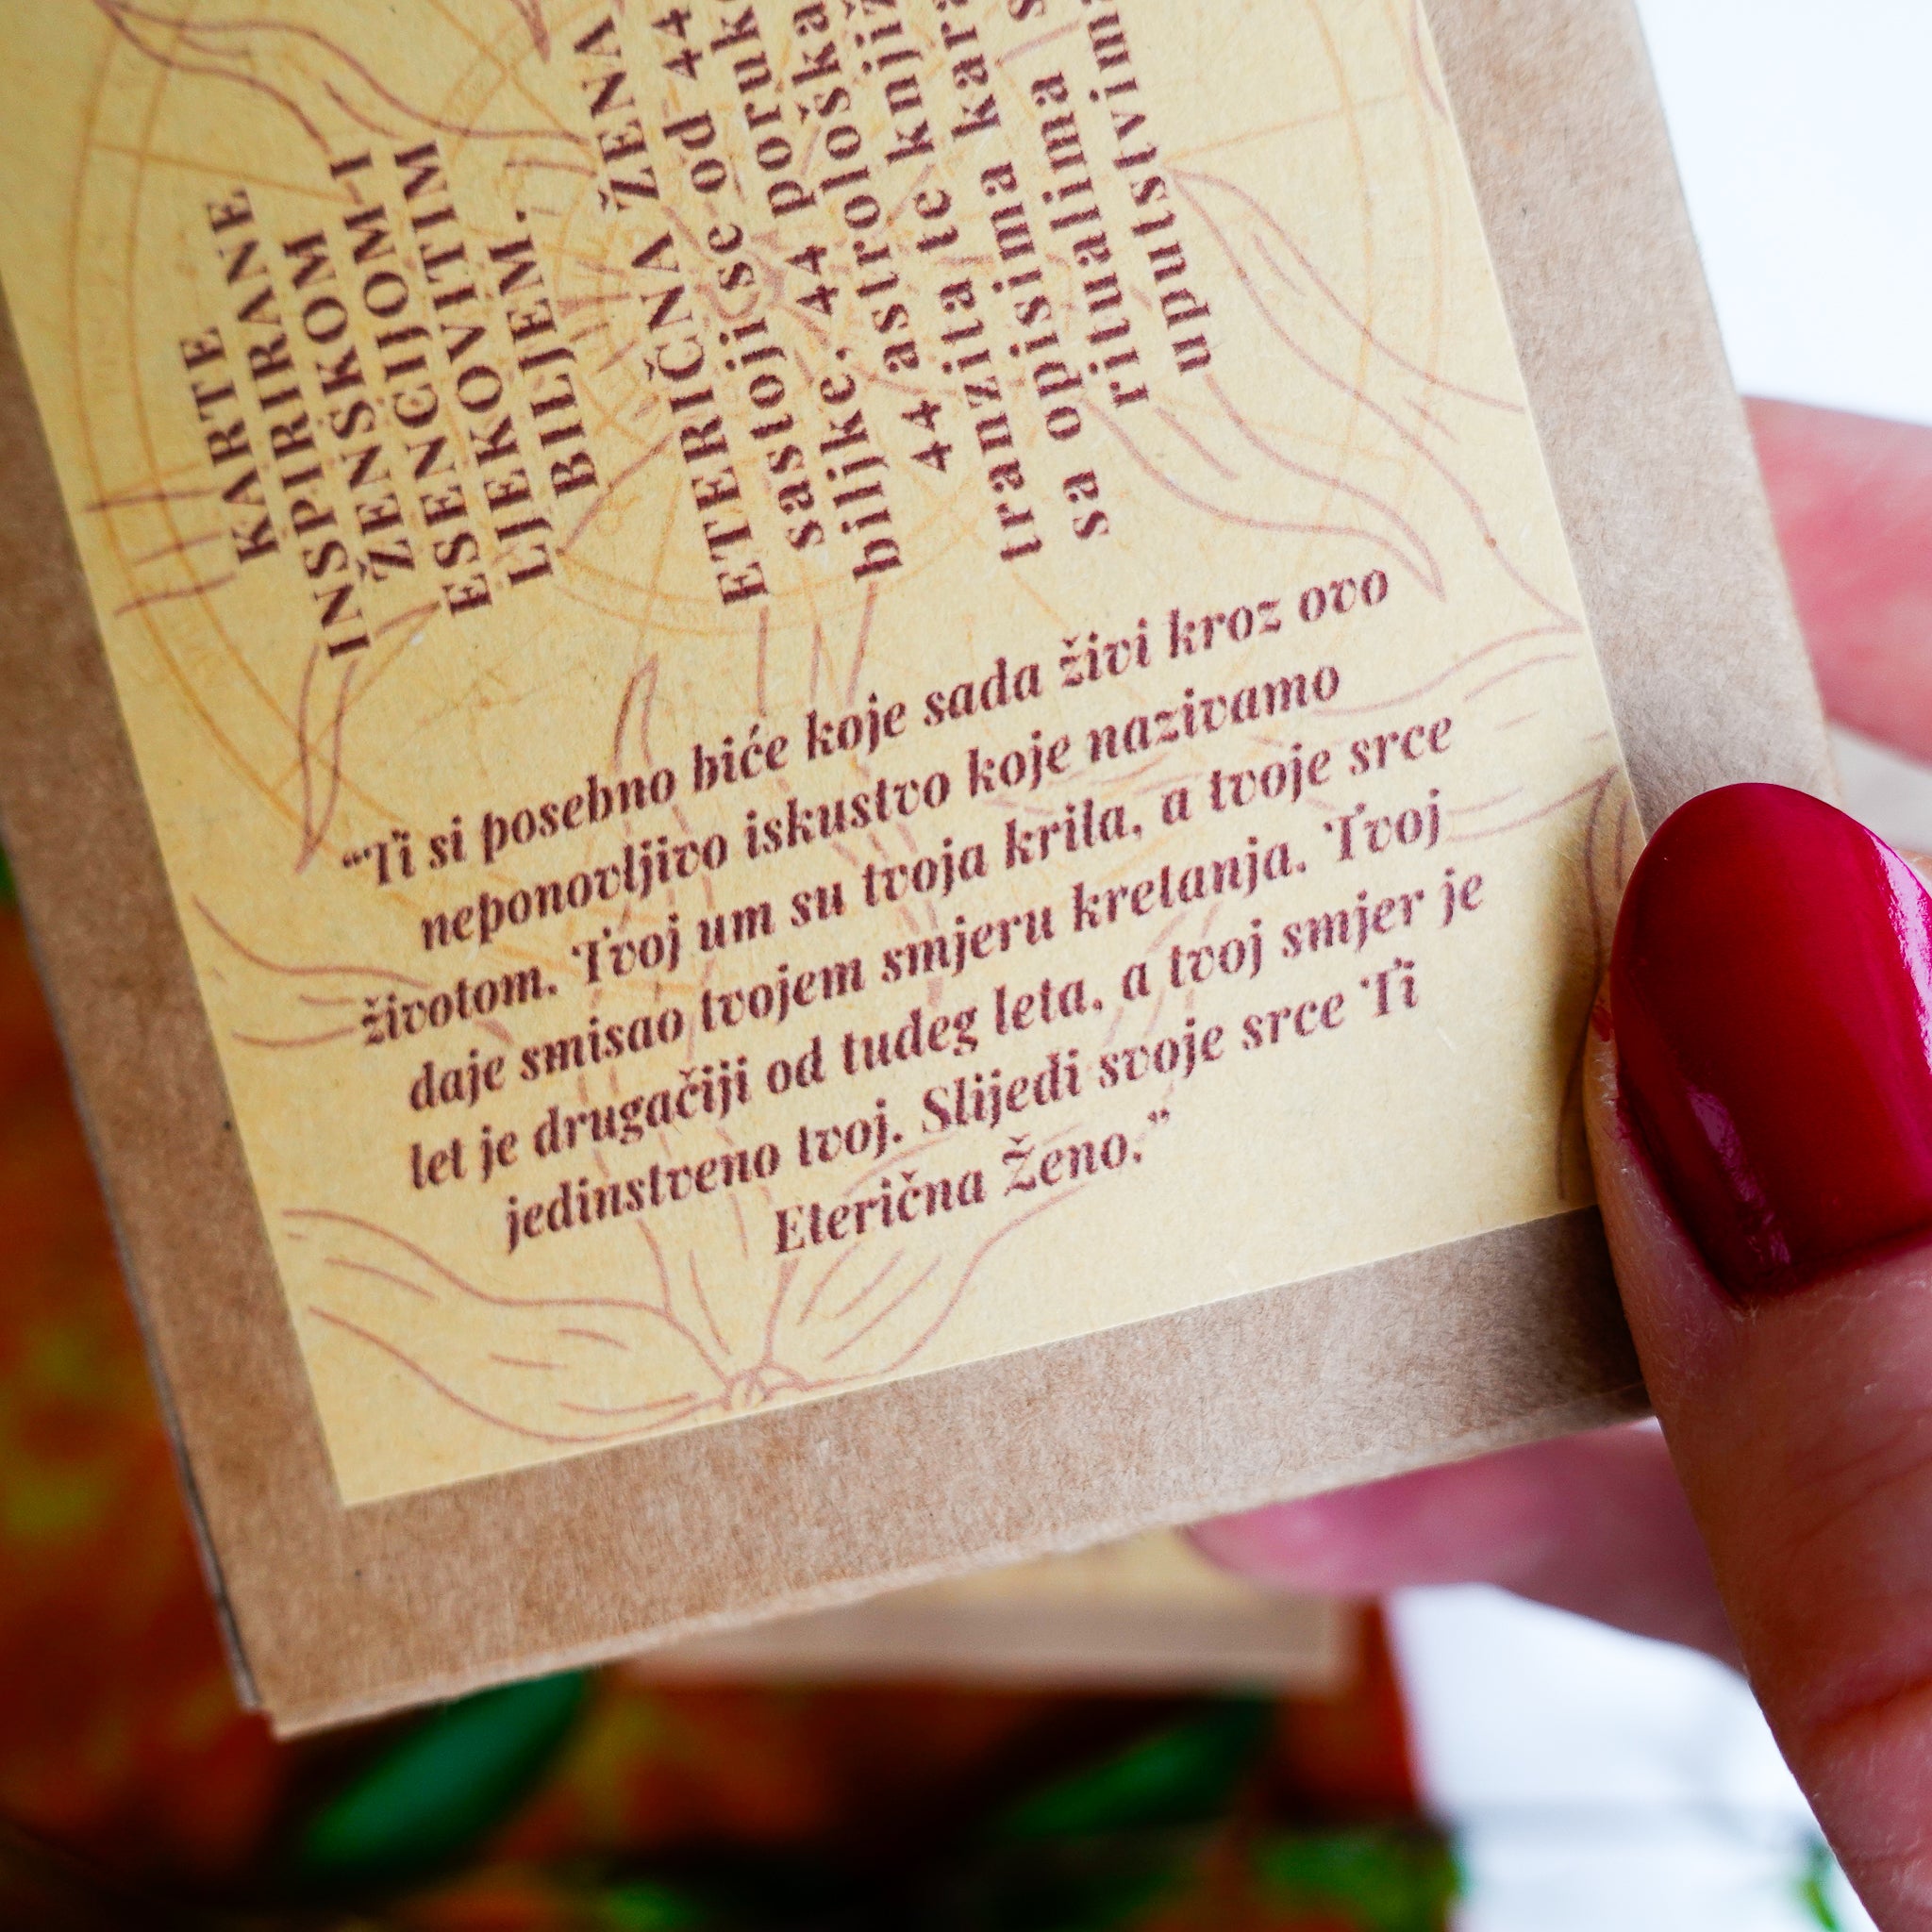 KARTE
INSPIRIRANE
ŽENSKOM
ESENCIJOM I
LJEKOVITIM
BILJEM.
ETERIČNA ŽENA
sastoji se od 44
biljke, 44
44 astrološka
tranzita te
sa opisima
ritualima
uputstvima
“Ti si posebno biće koje sada živi kroz ovo
neponovljivo iskustvo koje nazivamo
životom. Tvoj um su tvoja krila, a tvoje srce
daje smisao tvojem smjeru kretanja. Tvoj
let je drugačiji od tuđeg leta, a tvoj smjer je
jedinstveno tvoj. Slijedi svoje srce Ti
Eterična Ženo.”